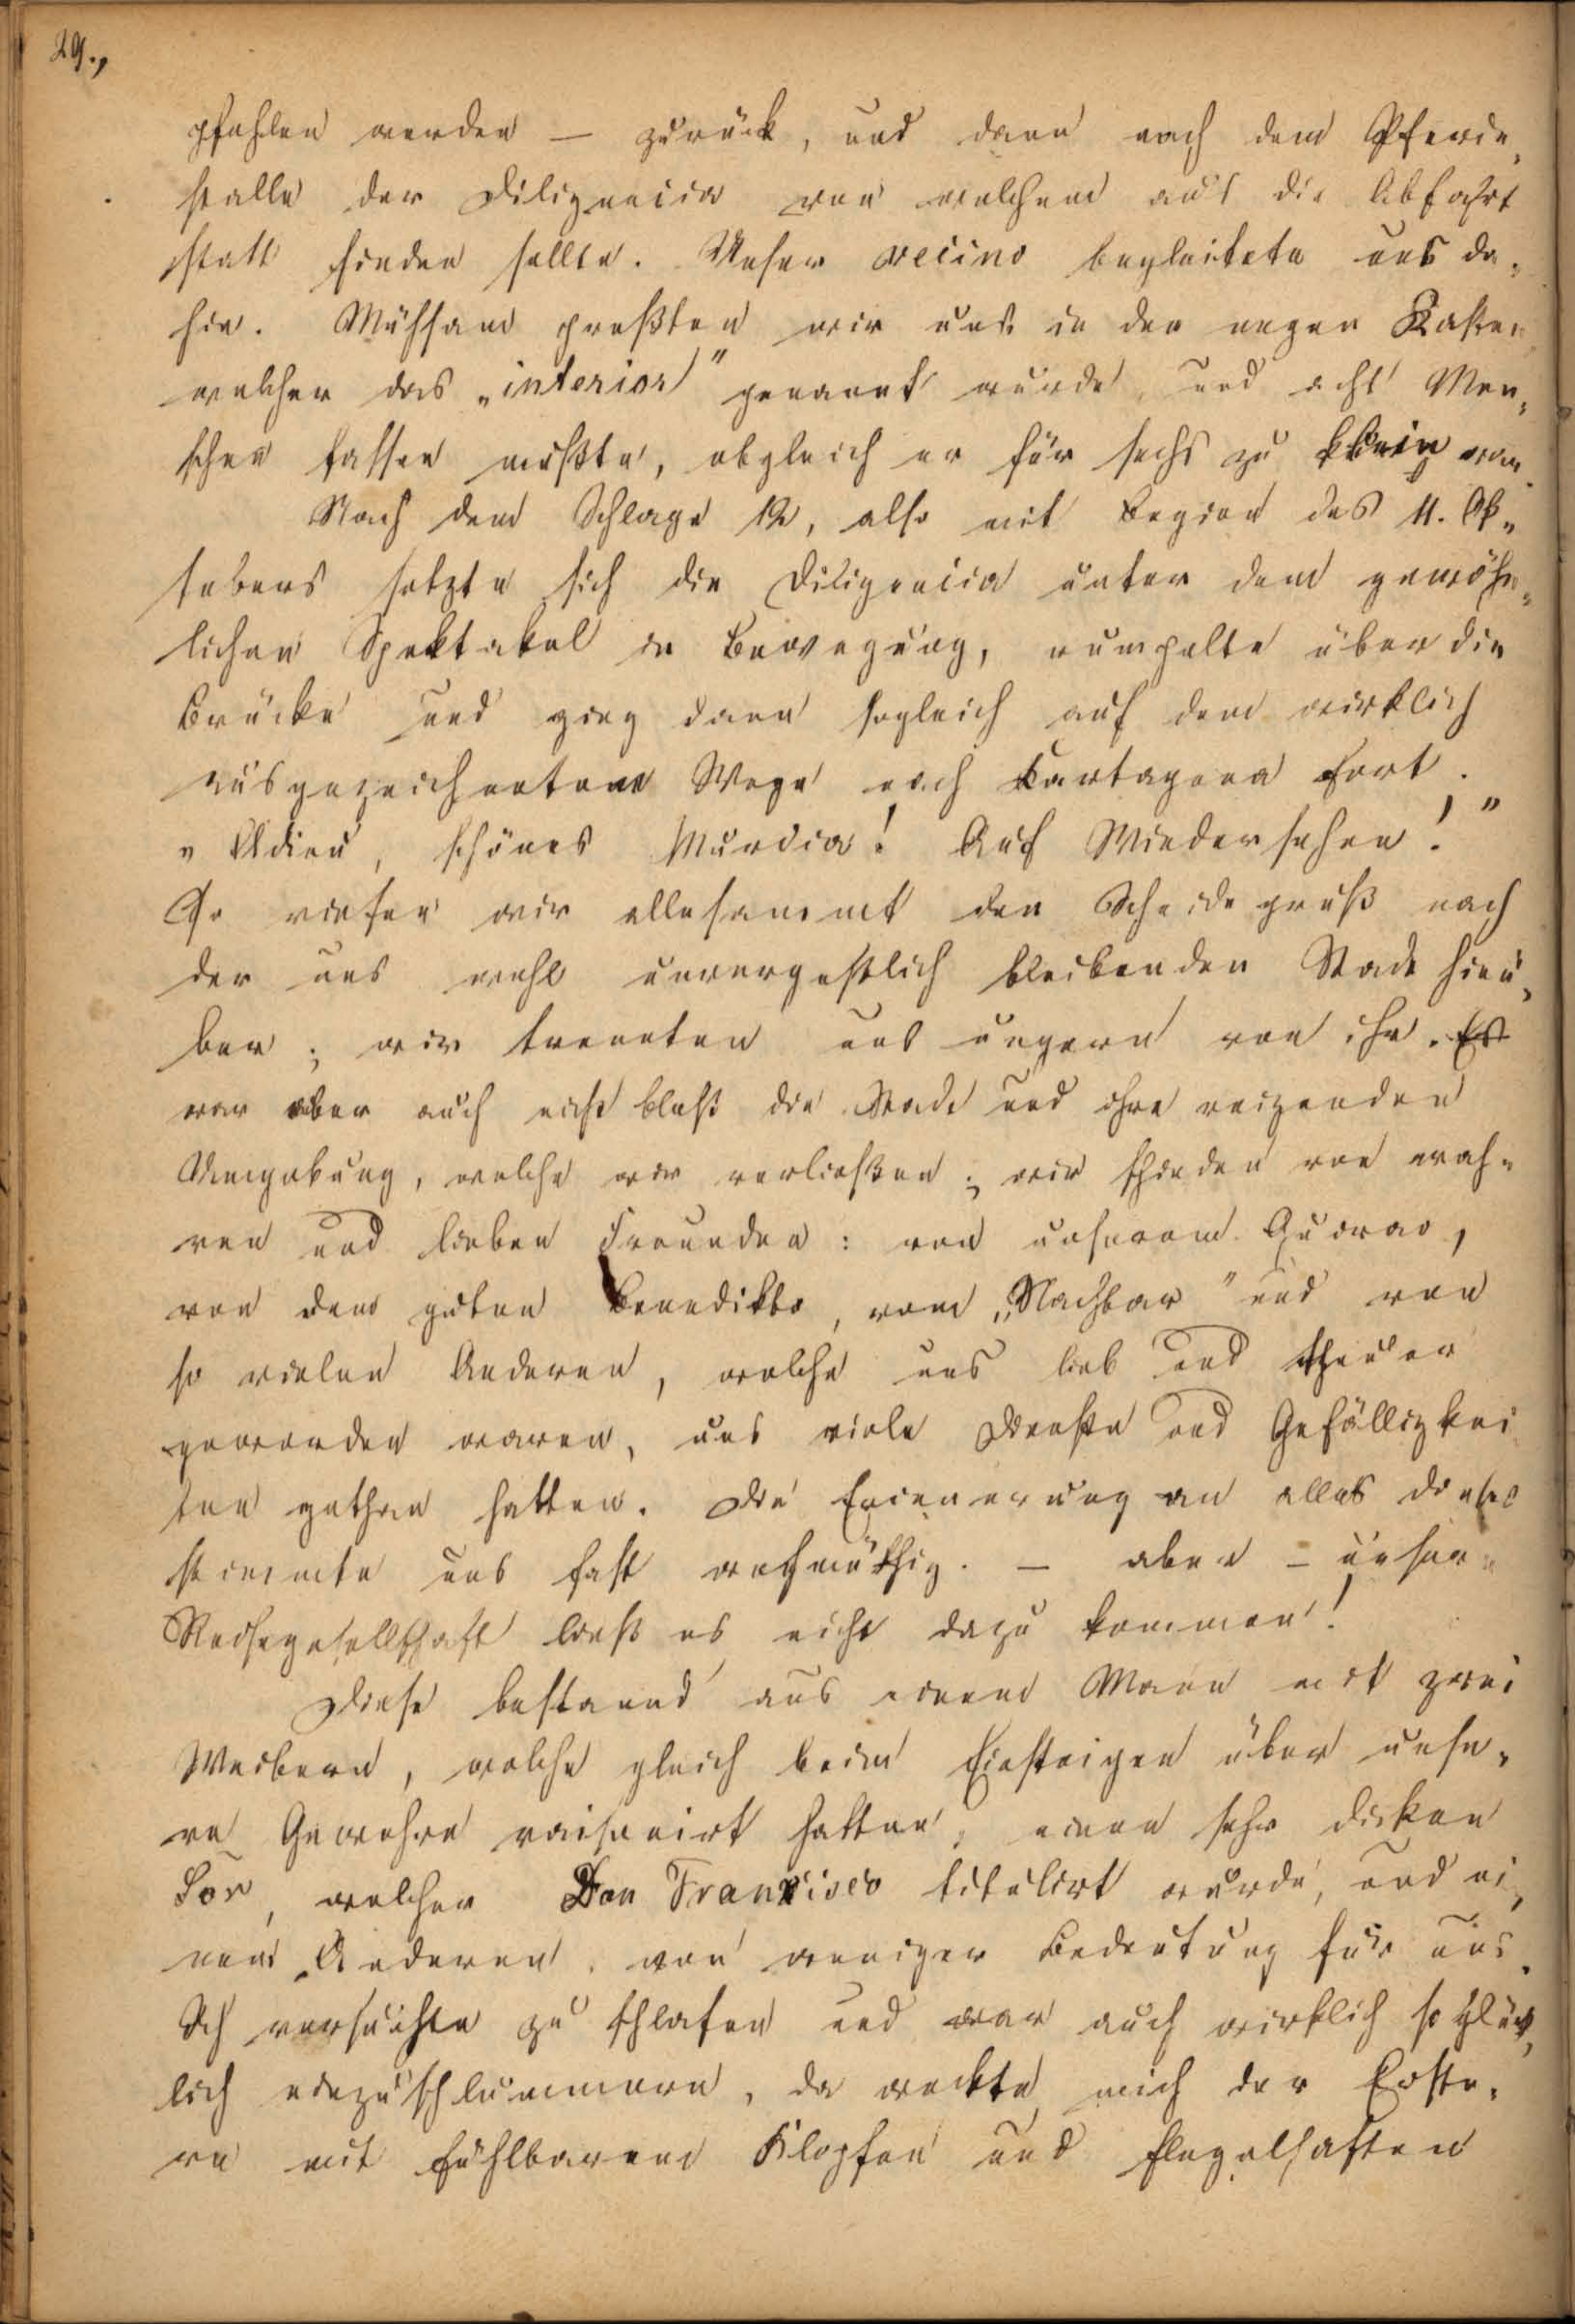 29.,
pfohlen werden — zurück, und dann nach dem Pferde„
stalle der Diligencia von welchem aus die Abfahrt
statt finden sollte. Unser vecino begleitete uns da„
hin. Mühsam preßten wir uns in den engen Kasten
welcher das „interior" genannt wurde, und acht Men„
schen fassen mußte, obgleich er für sechs zu klein war.
Nach dem Schlage 12, also mit Beginn des 11. Ok„
tobers setzte sich die Diligencia unter dem gewöhn„
lichen Spektakel in Bewegung, rumpelte über die
Brücke und ging dann sogleich auf dem wirklich
ausgezeichneten Wege nach Cartagena fort.
„Adieu, schönes Murcia! Auf Wiedersehen!"
So riefen wir allesammt den Scheidegruß nach
der uns wohl unvergeßlich bleibenden Stadt hinü„
ber; wir trennten uns ungern von ihr. Es
war aber auch nicht bloß die Stadt und ihre reizenden
Umgebung, welche wir verließen; wir schieden von wah„
ren und lieben Freunden: von unserem Guirao,
von dem guten Benedikto, vom „Nachbar" und von
so vielen Anderen, welche uns lieb und theuer
geworden waren, uns viele Dienste und Gefälligkei
ten gethan hatten. Die Erinnerung an alles dieses
stimmte uns fast wehmüthig. — aber – unsere
Reisegesellschaft ließ es nicht dazu kommen!
Diese bestand aus einem Mann mit zwei
Weibern, welche gleich beim Einsteigen über unse„
re Gewehre raisonirt hatten, einen sehr dicken
Sor, welcher Don Franzisco titulirt wurde, und ei„
nem Anderen, von weniger Bedeutung für uns.
Ich versuchte zu schlafen und war auch wirklich so glück„
lich einzuschlummern, da weckte mich der Erste„
re mit fühlbarem Klopfen und flegelhaften